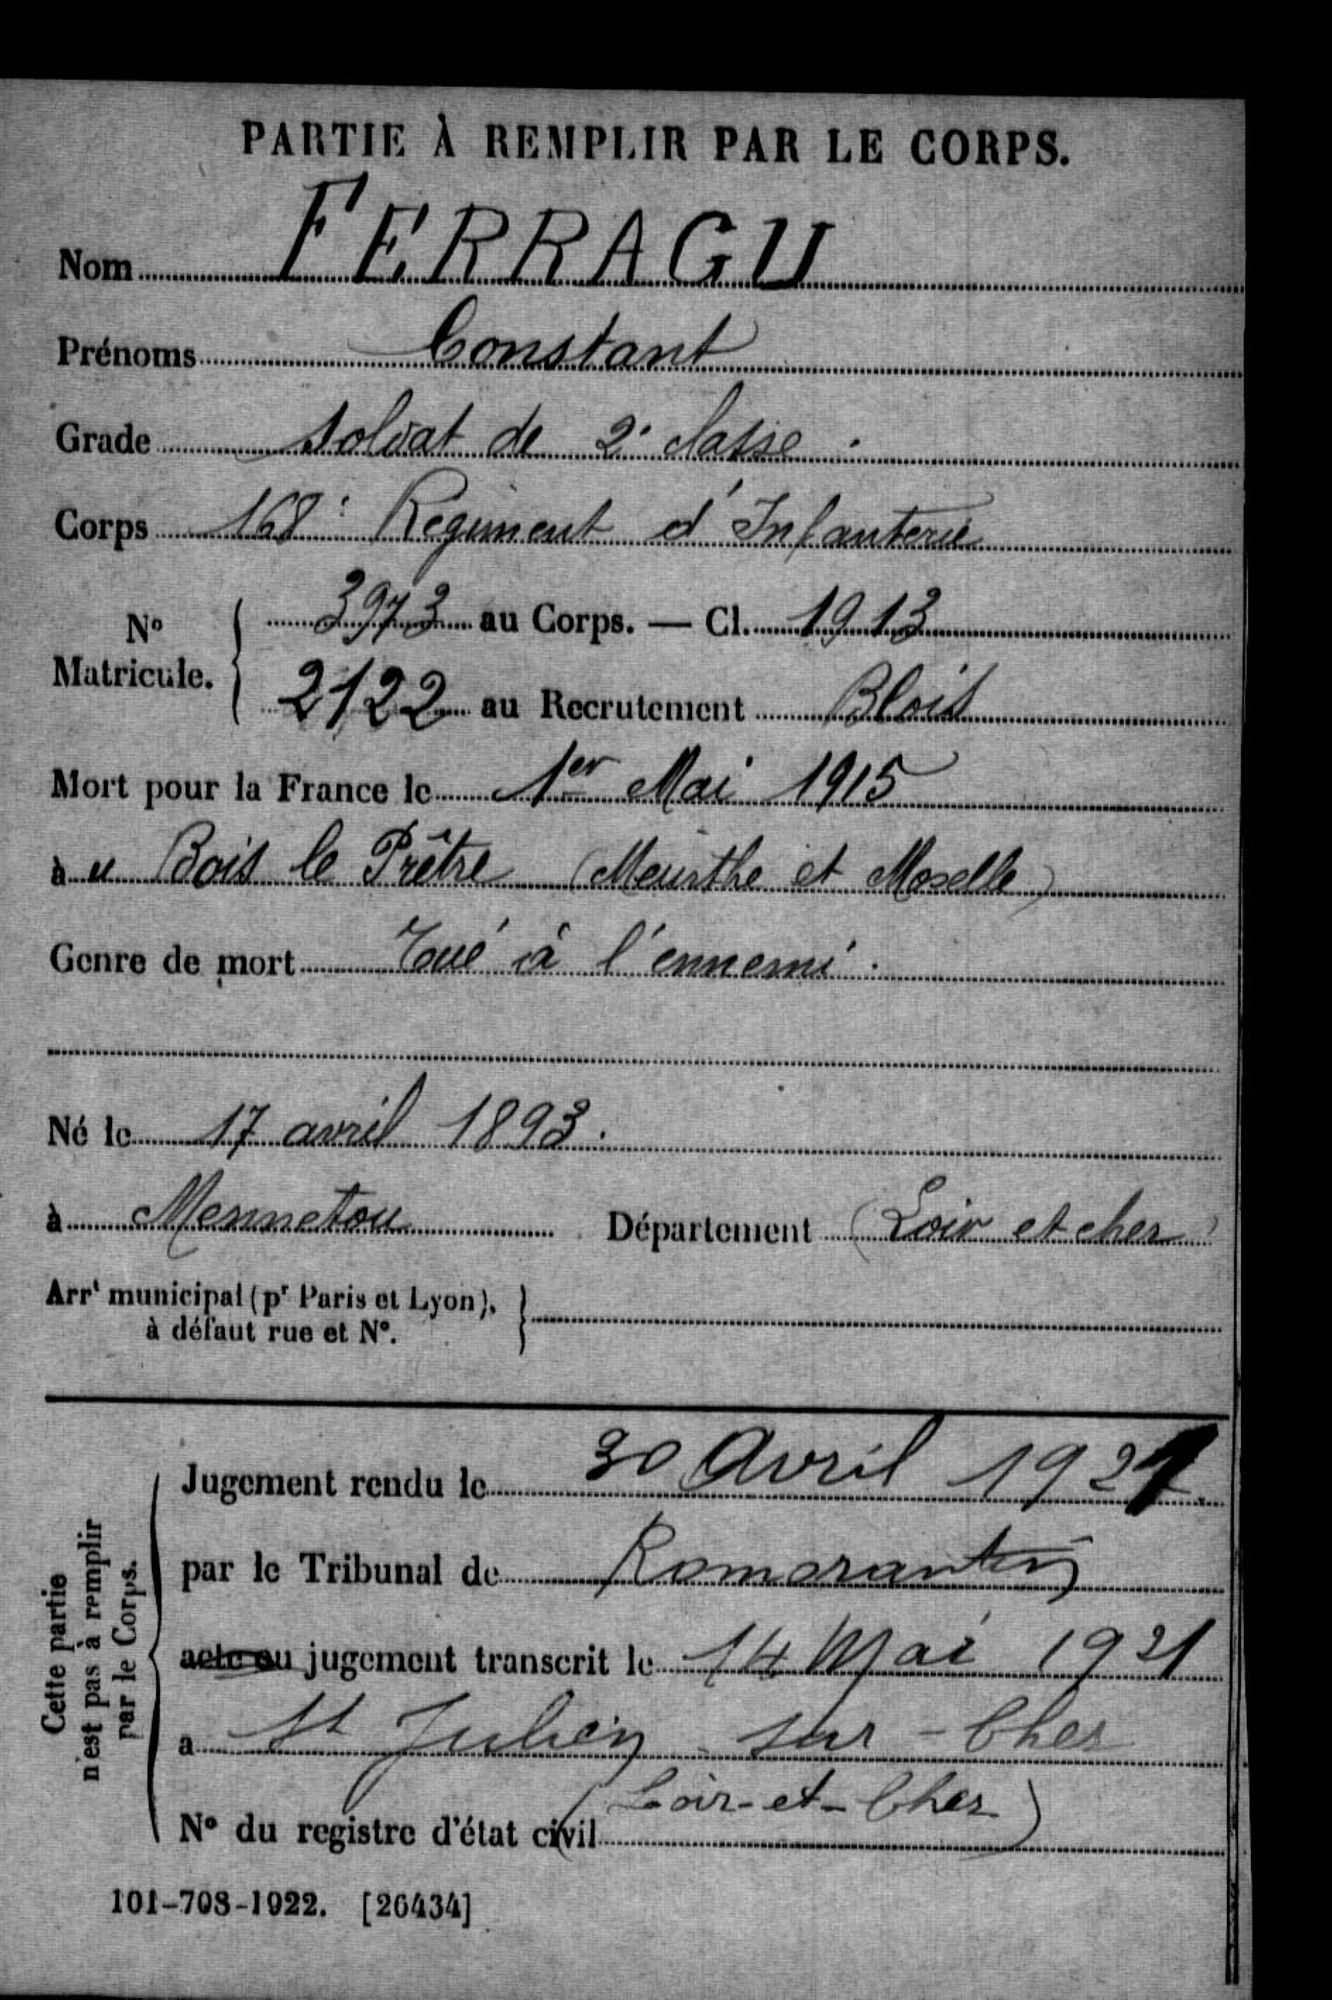 PARTIE À REMPLIR PAR LE CORPS.
Nom FERRAGU
Prénoms Constant
Grade Soldat de 2e classe.
Corps 168e Régiment d'Infanterie
No Matricule. { 3973 au Corps. — Cl. 1913
2122 au Recrutement Blois
Mort pour la France le 1er Mai 1915
à u Bois le Prêtre (Meurthe et Moselle)
Genre de mort Tué à l'ennemi.
Né le 17 avril 1893.
à Mennetou Département (Loir et cher)
Arrt municipal (pr Paris et Lyon), }
à défaut rue et No.
Cette partie
n'est pas à remplir
par le Corps.
Jugement rendu le 30 Avril 1921.
par le Tribunal de Romorantin
acte ou jugement transcrit le 14 Mai 1921
a St Julien sur-Cher
(Loir-et-Cher)
No du registre d'état civil
101-708-1922. [26434]